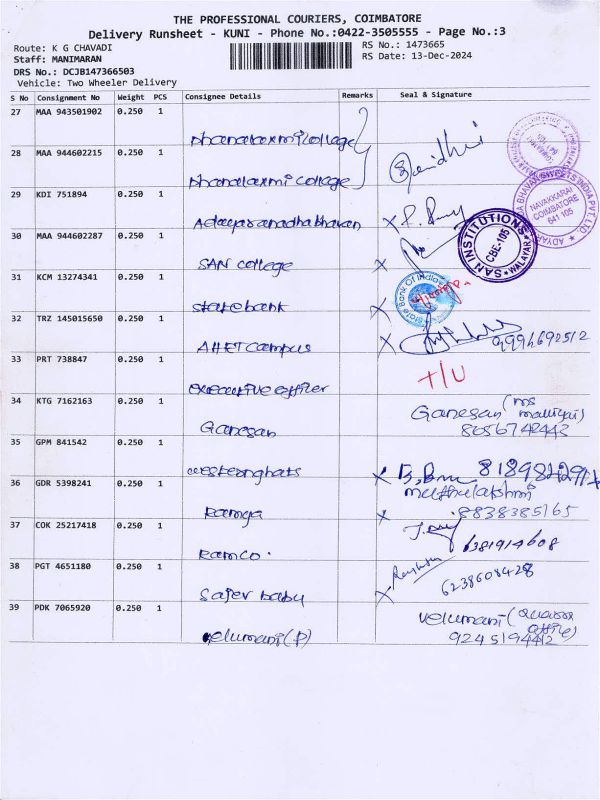 THE PROFESSIONAL COURIERS, COIMBATORE
Delivery Runsheet - KUNI - Phone No.:0422-3505555 - Page No.:3
Route: K G CHAVADI
RS No.: 1473665
Staff: MANIMARAN
RS Date: 13-Dec-2024
DRS No.: DCJB147366503
Vehicle: Two Wheeler Delivery
S No Consignment No Weight PCS Consignee Details Remarks Seal & Signature
27 MAA 943501902 0.250 1
Dhanalaxmi College
28 MAA 944602215 0.250 1
Dhanalaxmi College
29 KDI 751894 0.250 1
NAVAKKARAI
COIMBATORE
641 105
Adayar anadha bhavan
30 MAA 944602287 0.250 1
SAN INSTITUTIONS
CBE-105
WALAYAR
SAN College
31 KCM 13274341 0.250 1
State Bank Of India
state bank
32 TRZ 145015650 0.250 1
AHET Campus
33 PRT 738847 0.250 1
T/U
executive officer
34 KTG 7162163 0.250 1
Ganesan
Ganesan
8056742443
35 GPM 841542 0.250 1
westernghats
36 GDR 5398241 0.250 1
muthulakshmi
Ramya
8838385165
37 COK 25217418 0.250 1
6381914608
Ramco.
38 PGT 4651180 0.250 1
6238608428
Sajev baby
39 PDK 7065920 0.250 1
velumani
velumani (P)
9245194412